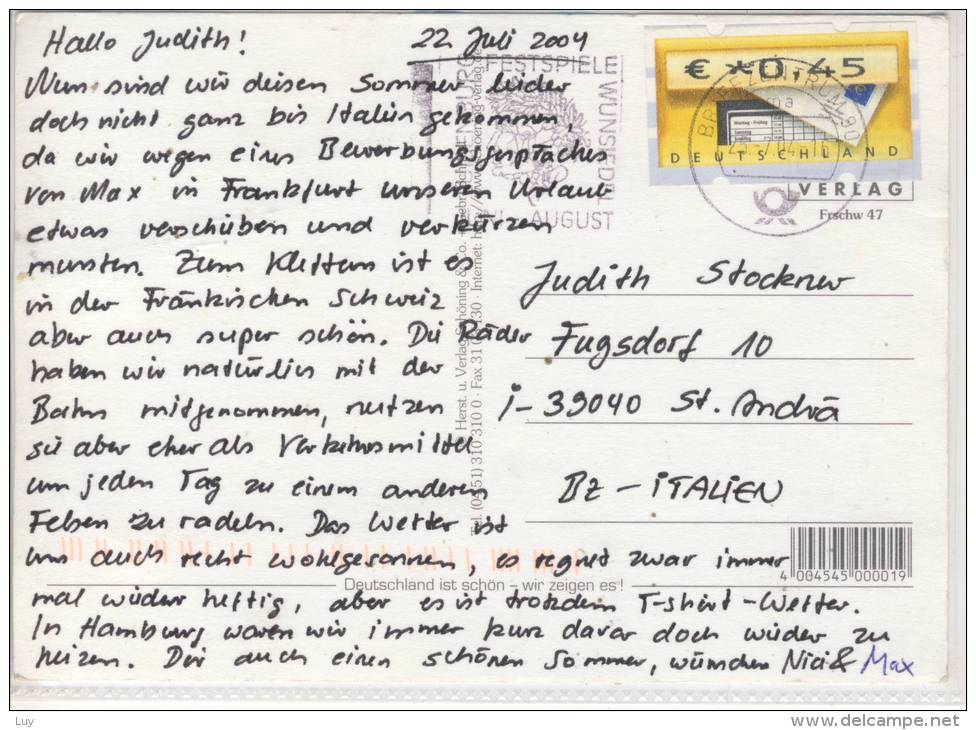 Hallo Judith!
22. Juli 2004
Nun sind wir diesen Sommer leider
doch nicht ganz bis Italien gekommen,
da wir wegen eines Bewerbungsgespräches
von Max in Frankfurt unseren Urlaub
etwas verschieben und verkürzen
mussten. Zum Klettern ist es
in der Fränkischen Schweiz
aber auch super schön. Die Räder
haben wir natürlich mit der
Bahn mitgenommen, nutzen
sie aber eher als Verkehrsmittel
um jeden Tag zu einem anderen
Felsen zu radeln. Das Wetter ist
uns auch recht wohlgesonnen, es regnet zwar immer
mal wieder heftig, aber es ist trotzdem T-Shirt-Wetter.
In Hamburg waren wir immer kurz davor doch wieder zu
heizen. Dir auch einen schönen Sommer, wünschen Nici & Max
€ *0,45
DEUTSCHLAND
BRIEFZENTRUM
FESTSPIELE
WUNSIEDEL
AUGUST
VERLAG
Frschw 47
Judith Stockner
Fugsdorf 10
I-39040 St. Andrä
BZ - ITALIEN
Herst. u. Verlag Schöning & Co. +
Tel. (0451) 310 310 0 · Fax 31 · Internet:
4 004545 000019
Deutschland ist schön – wir zeigen es!
Luy
www.delcampe.net